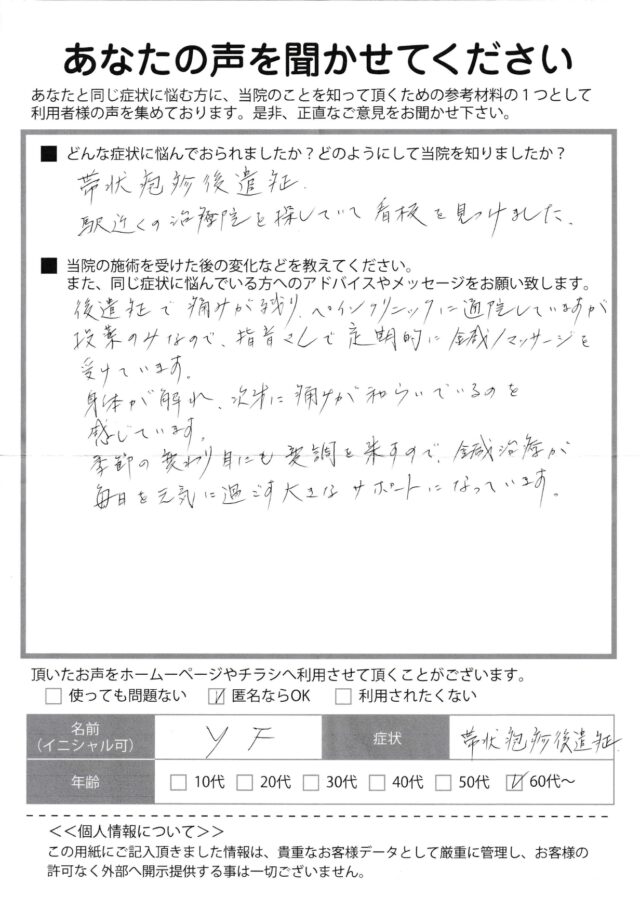 あなたの声を聞かせてください
あなたと同じ症状に悩む方に、当院のことを知って頂くための参考材料の1つとして
利用者様の声を集めております。是非、正直なご意見をお聞かせ下さい。
■ どんな症状に悩んでおられましたか？どのようにして当院を知りましたか？
帯状疱疹後遺症.
駅近くの治療院を探していて看板を見つけました.
■ 当院の施術を受けた後の変化などを教えてください。
また、同じ症状に悩んでいる方へのアドバイスやメッセージをお願い致します。
後遺症で痛みが残り、ペインクリニックに通院していますが
投薬のみなので、指首さんで定期的に鍼/マッサージを
受けています。
身体が解れ、次第に痛みが和らいでいるのを
感じています。
季節の変わり目にも変調を来すので、鍼治療が
毎日を元気に過ごす大きなサポートになっています。
頂いたお声をホームーページやチラシへ利用させて頂くことがございます。
□ 使っても問題ない ☑ 匿名ならOK □ 利用されたくない
名前
（イニシャル可）
Y F
症状
帯状疱疹後遺症
年齢 □ 10代 □ 20代 □ 30代 □ 40代 □ 50代 ☑ 60代〜
<<個人情報について>>
この用紙にご記入頂きました情報は、貴重なお客様データとして厳重に管理し、お客様の
許可なく外部へ開示提供する事は一切ございません。